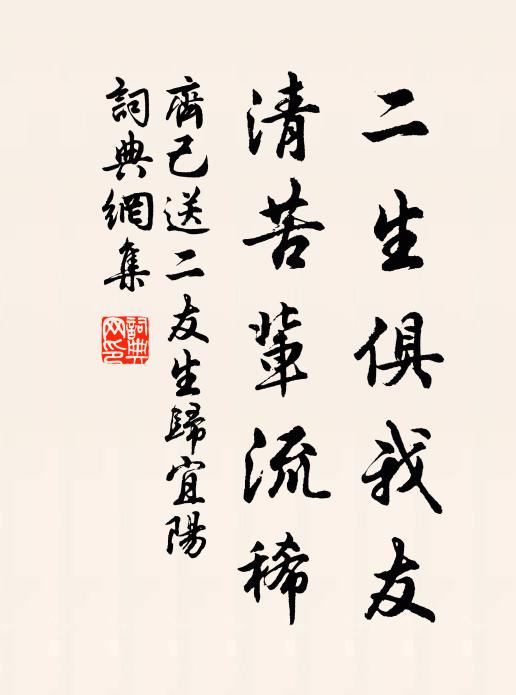 二生俱我友
清苦輩流稀
齊己送二友生歸宜陽
詞典網集
詞典網印